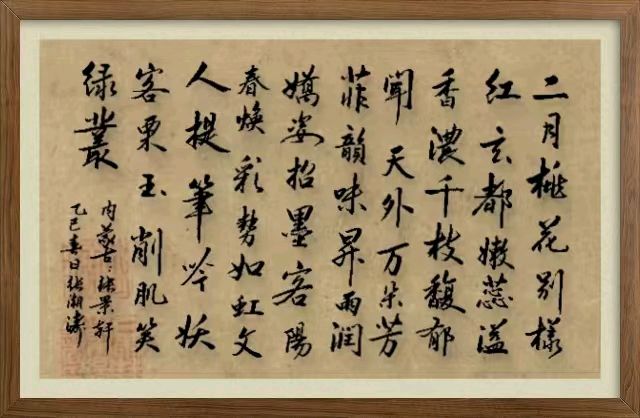 二月桃花別樣
红玄都嫩蕊溢
香濃千枝馥郁
聞天外万朵芳
菲韻味昇雨潤
嬌姿招墨客陽
春焕彩势如虹文
人提筆吟妖
客栗玉削肌笑
绿叢
内蒙古:张景轩
乙巳春日张湖涛